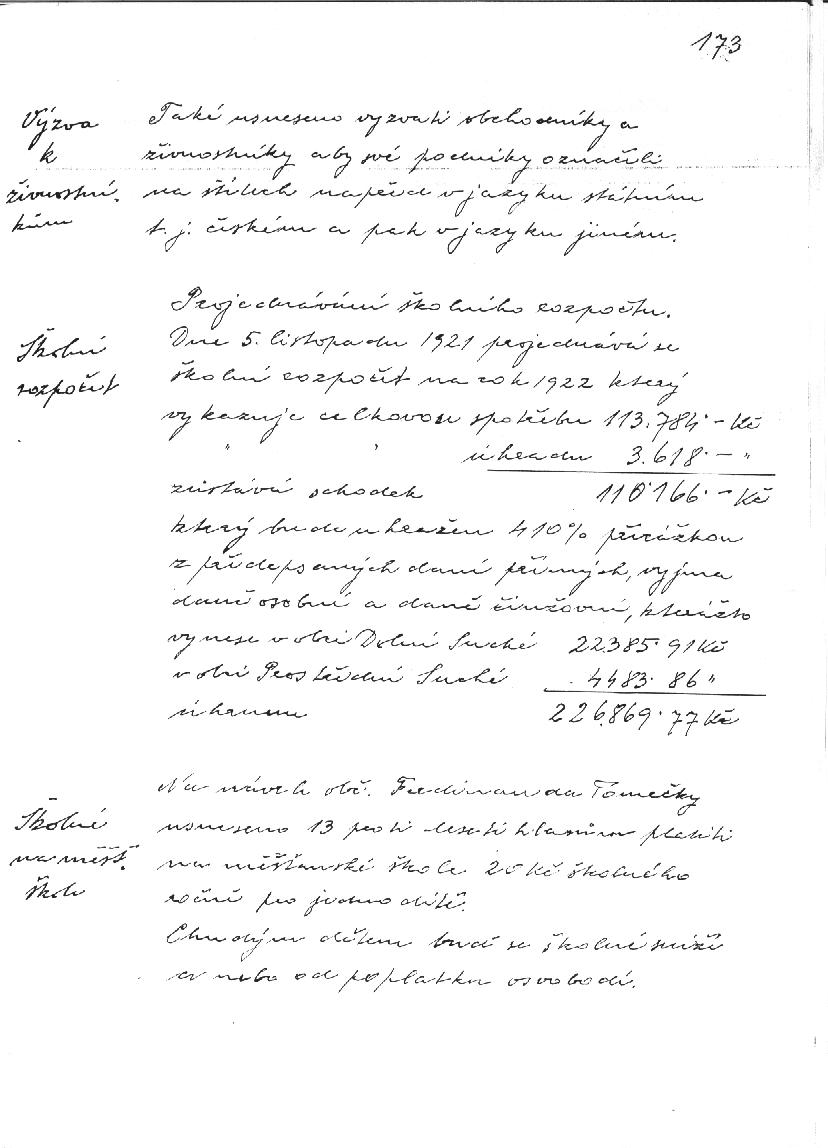 173
Výzva
k
živnostní-
kům
Také usneseno vyzvati obchodníky a
živnostníky aby své podniky označili
na štítech napřed v jazyku státním
t. j. českém a pak v jazyku jiném.
Školní
rozpočet
Projednávání školního rozpočtu.
Dne 5. listopadu 1921 projednává se
školní rozpočet na rok 1922 který
vykazuje celkovou spotřebu 113.784·– Kč
" " úhradu 3.618·– "
zůstává schodek 110·166·– Kč
který bude uhražen 410% přirážkou
z předepsaných daní přímých, vyjma
daně osobní a daně činžovní, kterážto
vynese v obci Dolní Suché 22385·91 Kč
v obci Prostřední Suché 4483·86 "
úhrnem 226.869·77 Kč
Školné
na měšť.
škole
Na návrh obč. Ferdinanda Tomečky
usneseno 13 proti deseti hlasům platiti
na měšťanské škole 20 Kč školného
ročně pro jedno dítě.
Chudým dětem buď se školné sníží
a nebo od poplatku osvobodí.